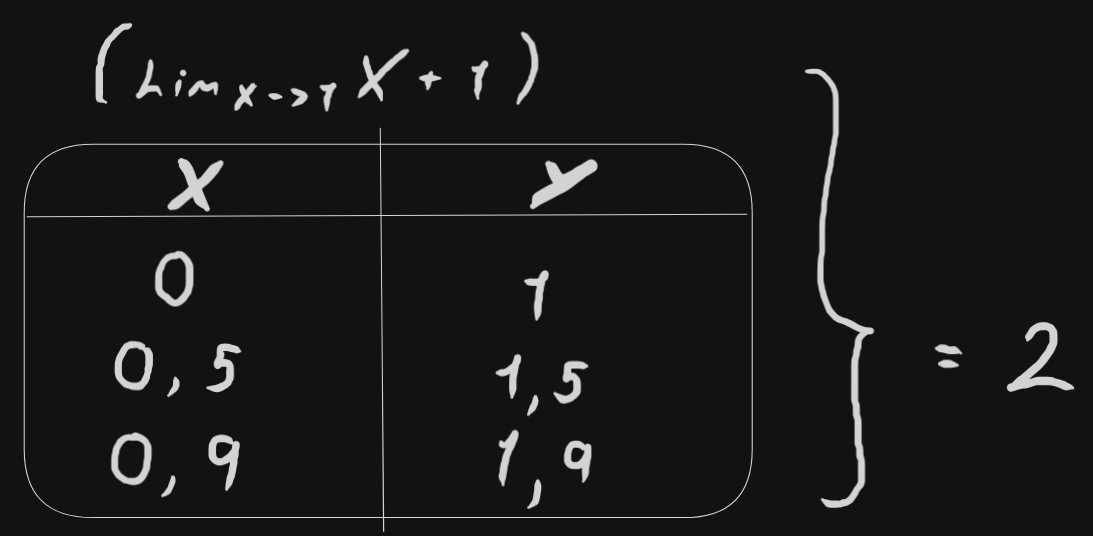 (Lim x->1 X + 1)
X Y
0 1
0,5 1,5
0,9 1,9
= 2